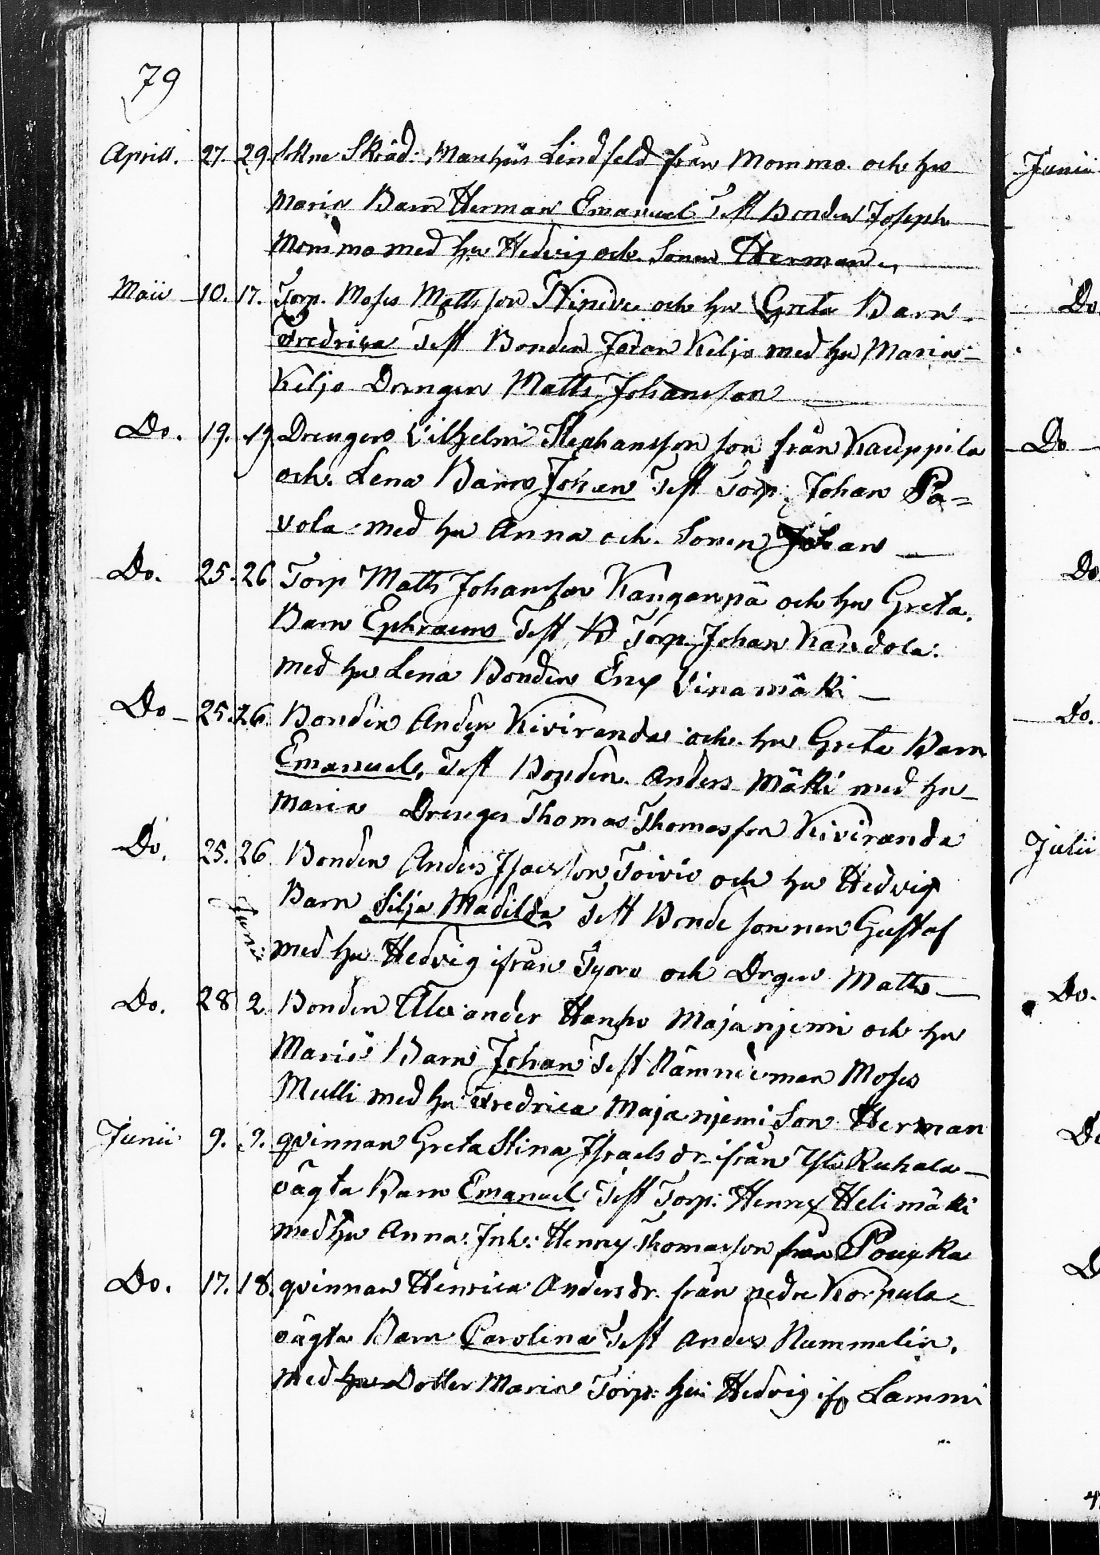 79
Aprill. 27. 29. Skne Skräd: Marchus Lindfeld från Mommo och hu
Maria Barn Herman Emanuel Test Bonden Joseph
Mommo med hu Hedvig och Sonen Herman
Maii 10. 17. Torp. Moses Mattsson och hu Greta Barn
Fredrica Test Bonden Johan Keljo med hu Maria
Keljo Drengen Matts Johansson
Do. 19. 19 Drengens Vilhelm Stephansson son från Kauppila
och Lena Barn Johan Test Torp. Johan Pa=
vola med hu Anna och Sonen Johan
Do. 25. 26 Torp Matts Johansson Kanganpä och hu Greta.
Barn Ephraim Test Torp. Johan Kandola.
med hu Lena Bonden Eric Vinamäki
Do 25. 26. Bonden Anders Kiviranda och hu Greta Barn
Emanuel, Test Bonden Anders Mäki med hu
Maria Drengen Thomas Thomasson Kiviranda
Do. 25. 26 Bonden Anders Isacsson Toivio och hu Hedvig
Barn Silja Madilda Test Bonde sonnen Gustaf
Junii
med hu Hedvig ifrån Tyorv och Drgn Matts
Do. 28 2 Bonden Alexander Hansso Majanjemi och hu
Maria Barn Johan Test Nämndeman Moses
Mulli med hu Fredrica Majanjemi Son Herman
Junii 9. 9. qvinnan Greta Stina Israels dr ifrån Yli Ruhala
oägta Barn Emanuel Test Torp: Henrey Helimäki
med hu Anna: Inh: Henrey Thomasson från Pouyka
Do. 17. 18. qvinnan Henrica Anders dr. från nedre Korpula
oägta Barn Carolina Test Anders Nummelin.
med Dotter Maria Torp: hu Hedvig ifr Lammi
Junii
Do.
Do
Do
Do.
Julii
Do.